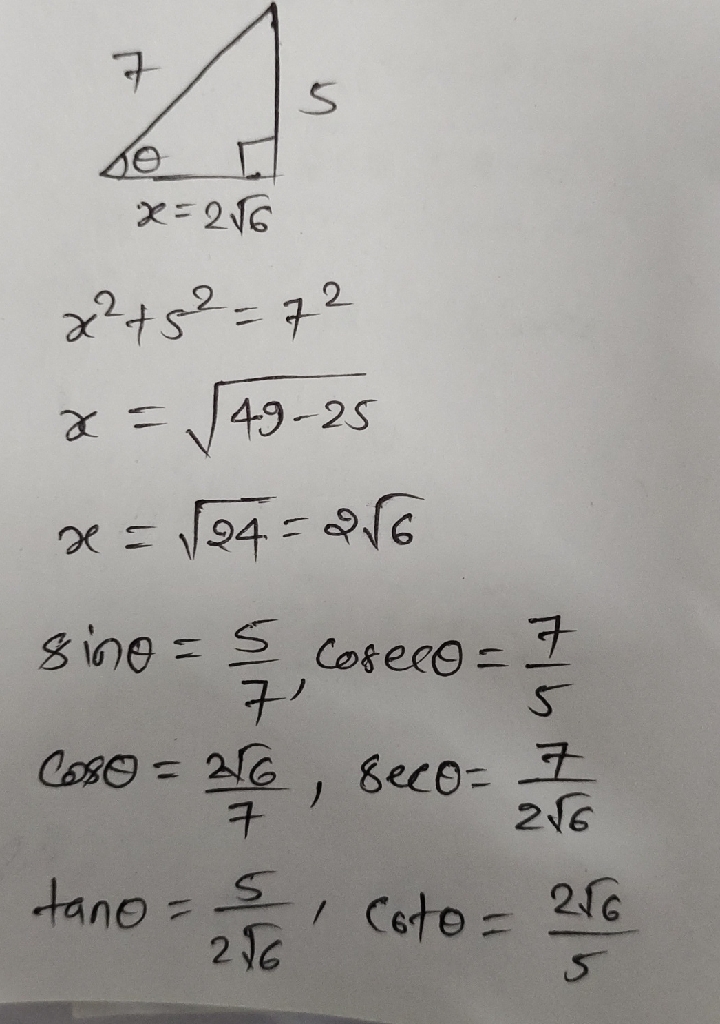 7
5
θ
x=2√6
x²+5²=7²
x = √49-25
x = √24 = 2√6
sinθ = 5/7, cosecθ = 7/5
cosθ = 2√6/7, secθ = 7/2√6
tanθ = 5/2√6, cotθ = 2√6/5